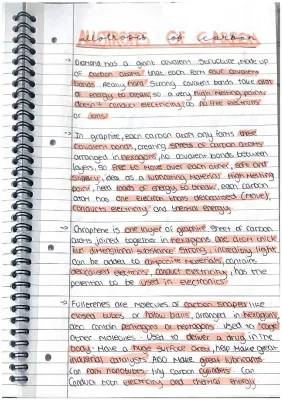 Allotropes Of Carbon
Diamond has a giant covalent structure, made up
of carbon atoms that each form four covalent
bonds. Really hard. Strong covalent bonds take alot
of energy to break, so a very high melting point,
doesn't conduct electricity as no free electrons
or ions.
In graphite, each carbon atom only forms three
covalent bonds, creating sheets of carbon atoms
arranged in hexagons, no covalent bonds between
layers, so free to move over each other, soft and
slippery, ideal as a lubricating material. High melting
point, need loads of energy to break, each carbon
atom has one electron thats delocalised (move),
conducts electricity and thermal energy.
Graphene is one layer of graphite sheet of carbon
atoms joined together in hexagons one atom thick
two dimensional substance. Strong, incredibly light
can be added to composite materials, contains
delocalised electrons, conduct electricity, has the
potential to be used in electronics.
Fullerenes are molecules of carbon shaped like
closed tubes or hollow balls, arranged in hexagons,
also contain pentagons or heptagons. Used to 'cage'
other molecules. Used to deliver a drug in the
body. Have a huge surface area, help make great
industrial catalysts. Also make great lubricants.
Can form nanotubes, tiny carbon cylinders. Can
conduct both electricity and thermal energy.